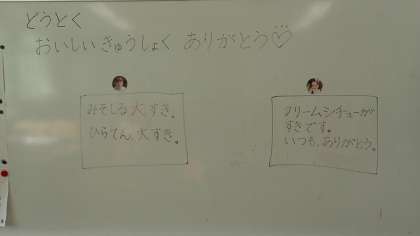 どうとく
おいしいきゅうしょく ありがとう♡
みそしる大すき。
ひらてん、大すき。
クリームシチューが
すきです。
いつも、ありがとう。